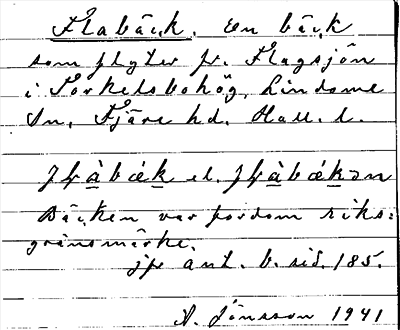 Flabäck. En bäck
som flyter fr. Flagsjön
i Torkelsbohög, Lindome
Sn, Fjäre hd. Hall. l.
bäk el.
Bäcken var fordom riks-
gränsmärke.
jfr ant. b. sid. 185.
A. Jönsson 1941